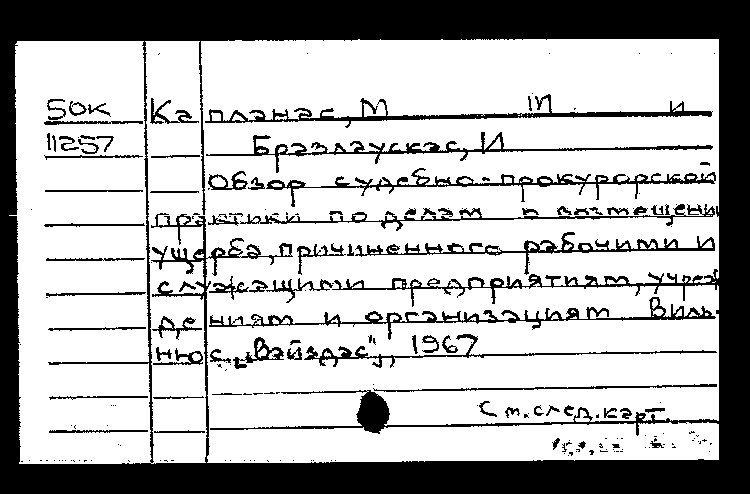 50К Капланас, М Ш и
11257 Бразлаускас, И
Обзор судебно-прокурорской
практики по делам о возмещени
ущерба, причиненного рабочими и
служащими предприятиям, учреж
дениям и организациям Виль-
нюс, „Вайздас", 1967
См. след. карт.